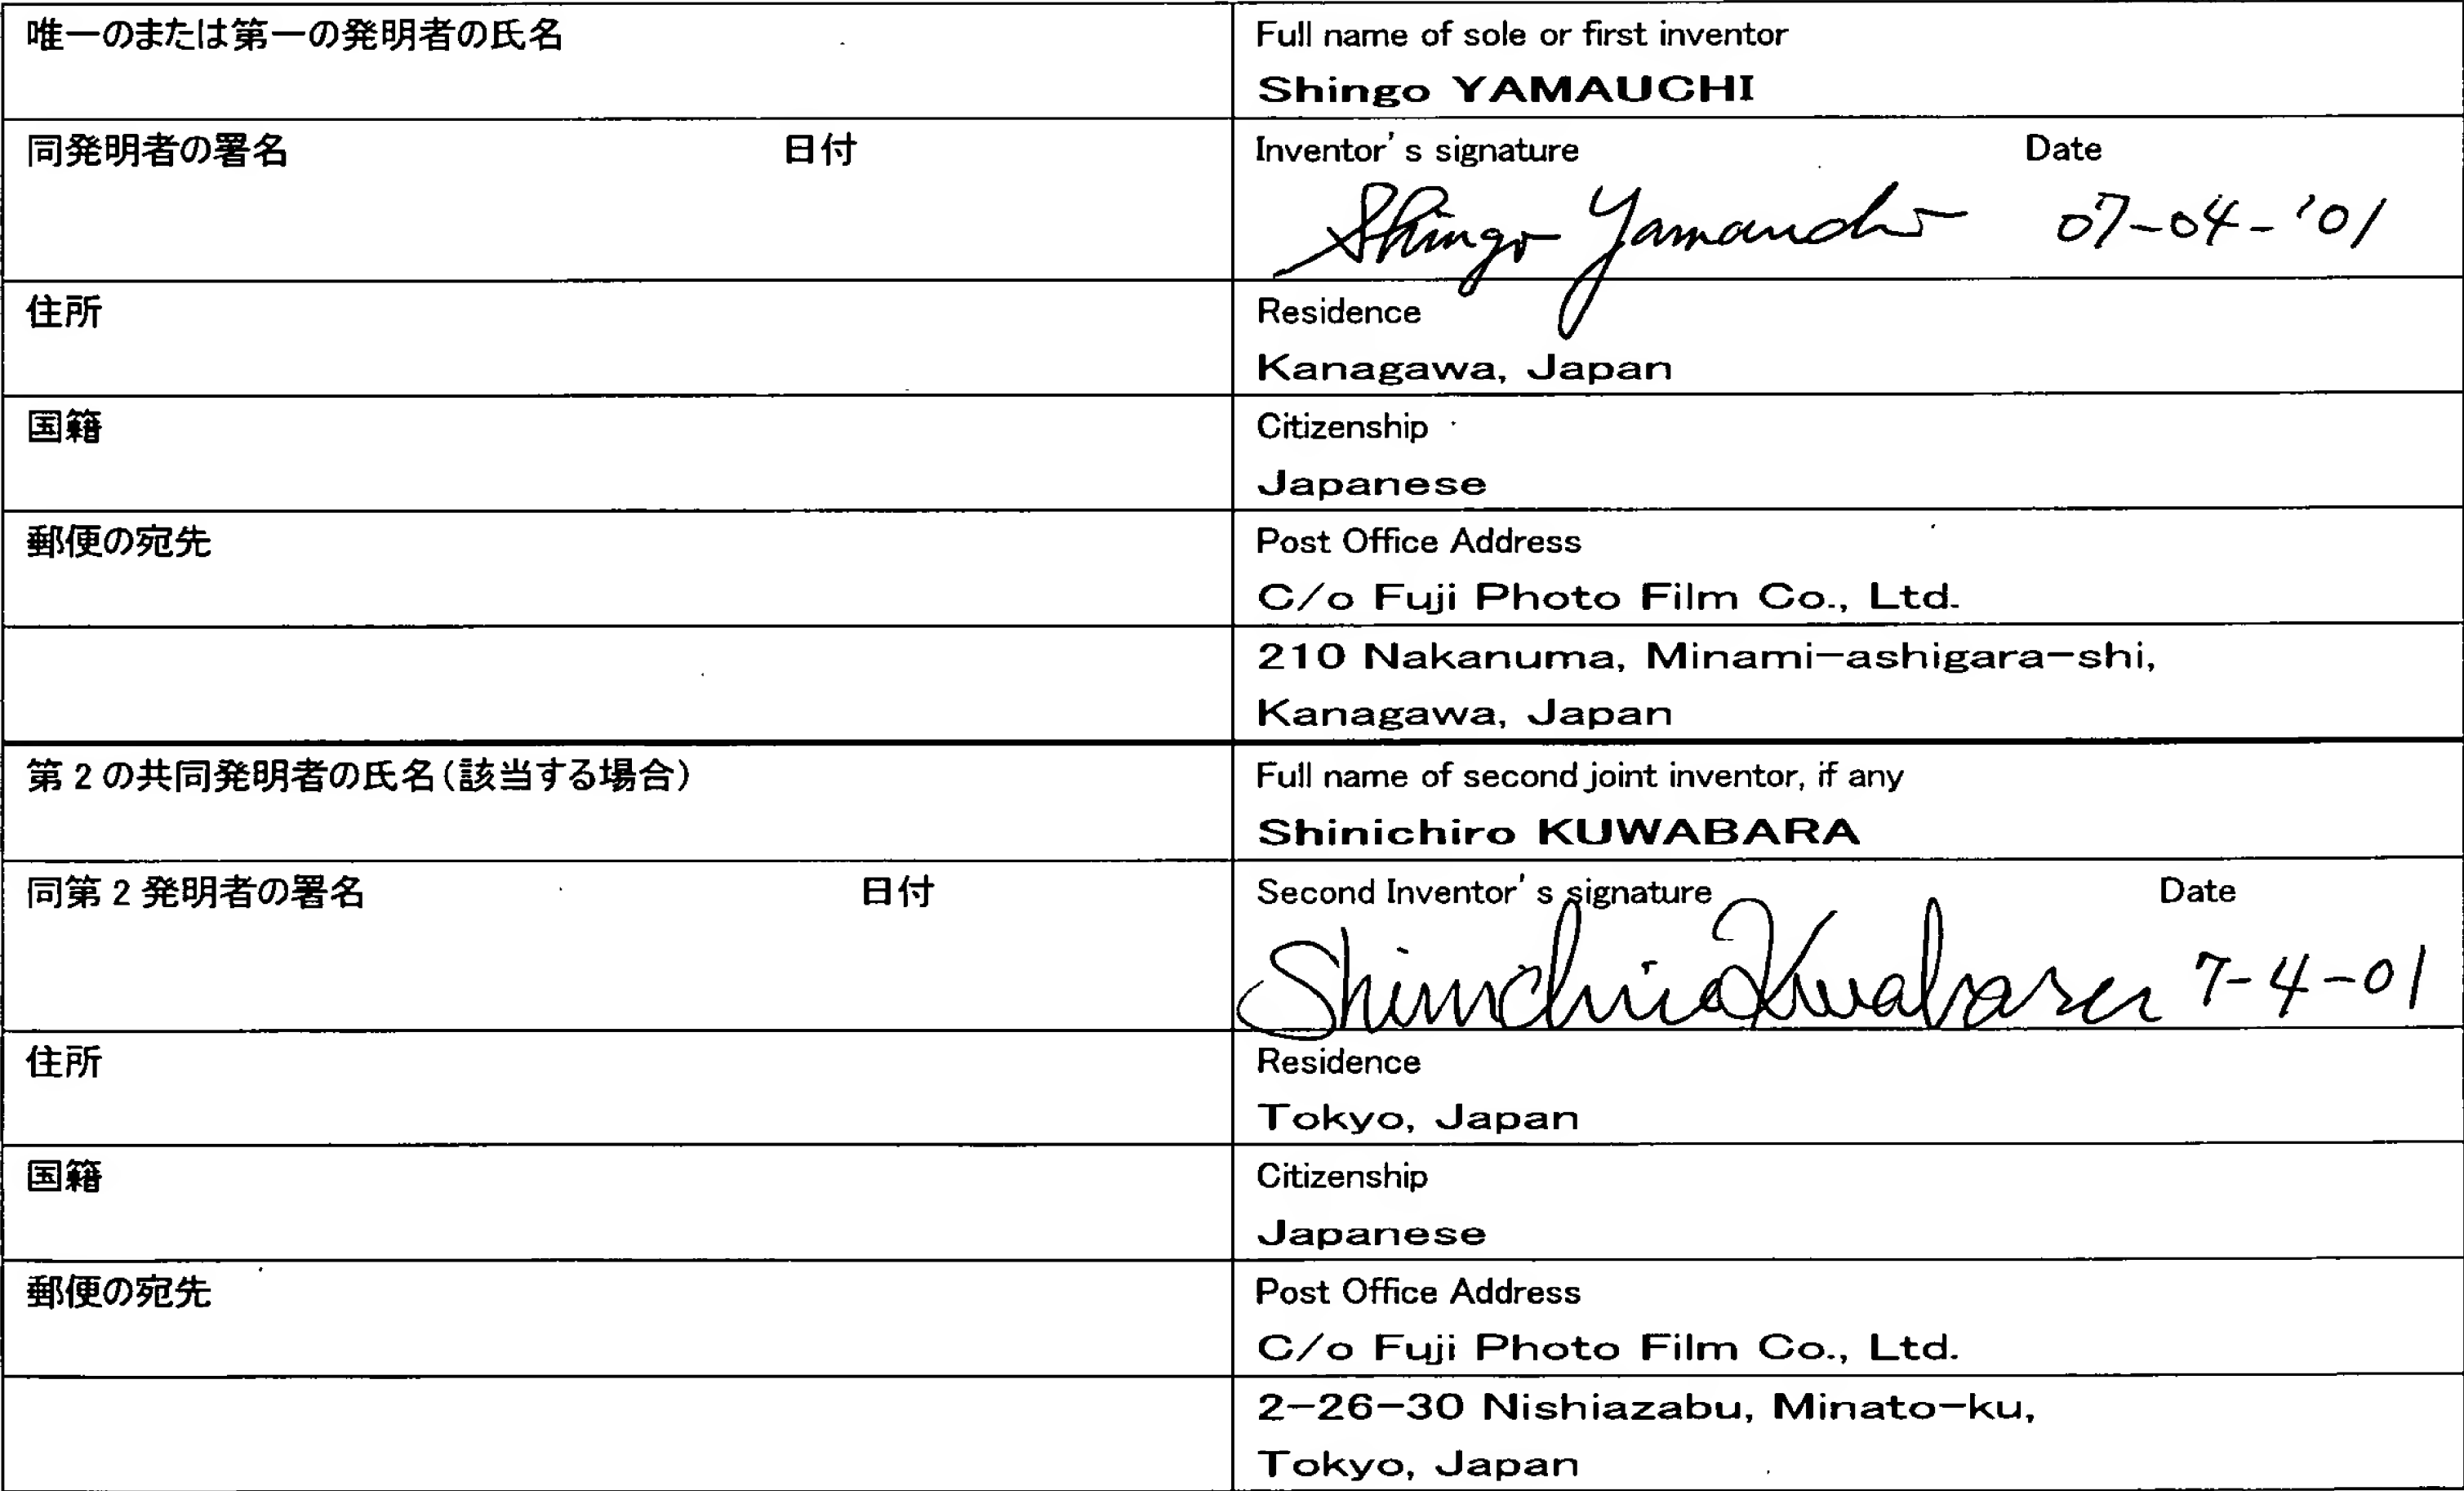 唯一のまたは第一の発明者の氏名
Full name of sole or first inventor
Shingo YAMAUCHI
同発明者の署名 日付
Inventor's signature Date
Shingo Yamauchi 07-04-'01
住所
Residence
Kanagawa, Japan
国籍
Citizenship
Japanese
郵便の宛先
Post Office Address
C/o Fuji Photo Film Co., Ltd.
210 Nakanuma, Minami-ashigara-shi,
Kanagawa, Japan
第2の共同発明者の氏名(該当する場合)
Full name of second joint inventor, if any
Shinichiro KUWABARA
同第2発明者の署名 日付
Second Inventor's signature Date
Shinichiro Kuwabara 7-4-01
住所
Residence
Tokyo, Japan
国籍
Citizenship
Japanese
郵便の宛先
Post Office Address
C/o Fuji Photo Film Co., Ltd.
2-26-30 Nishiazabu, Minato-ku,
Tokyo, Japan